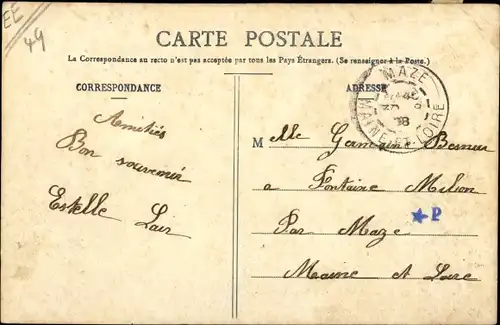 EE
49
CARTE POSTALE
La Correspondance au recto n'est pas acceptée par tous les Pays Étrangers. (Se renseigner à la Poste.)
CORRESPONDANCE
ADRESSE
MAZÉ
MAINE-ET-LOIRE
Amitiés
Bon souvenir
Estelle Lair
Mlle Germaine Besnier
a Fontaine Milon
Par Maze
Maine et Loire
★ P